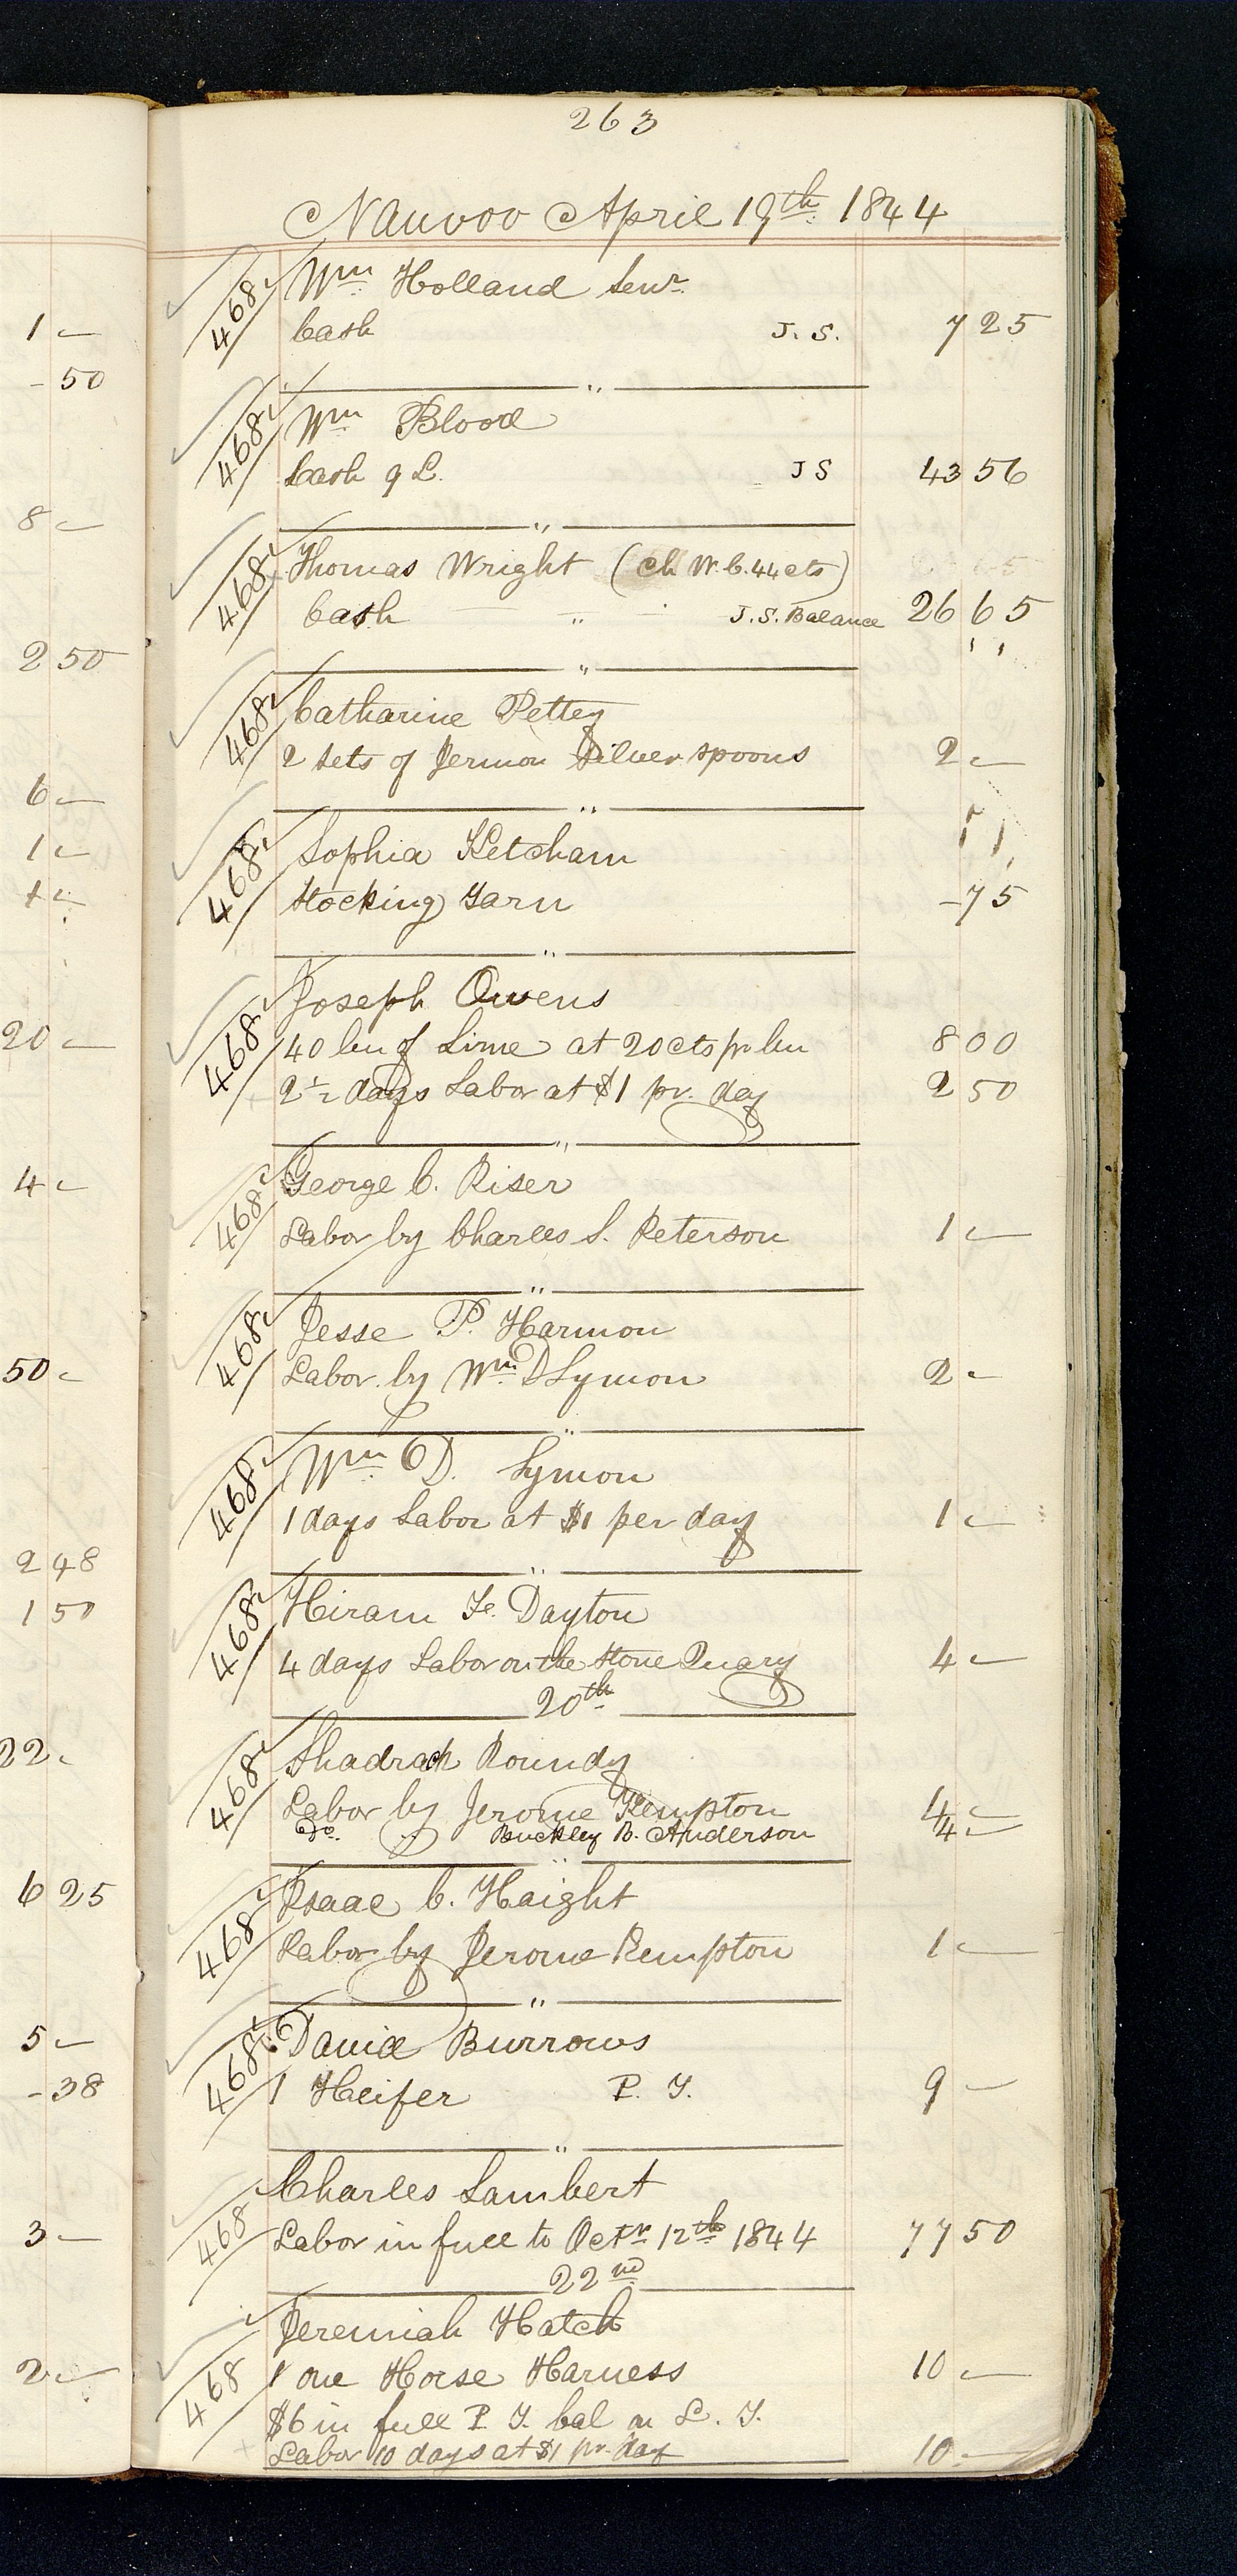 263
Nauvoo April 19th 1844
468 Wm Holland Senr
Cash J. S. 7 25
"
468 Wm Blood
Cash J S 43 56
"
468 Thomas Wright (Ch W. C. 44 cts)
Cash " J. S. Balance 26 65
"
468 Catharine Pettey
2 Sets of Jermon Silver spoons 2 —
"
468 Sophia Ketcham
Stocking Yarn - 75
"
468 Joseph Owens
40 bu of Lime at 20 cts pr bu 8 00
2 1/2 days Labor at $1 pr. day 2 50
"
468 George C. Riser
Labor by Charles S. Peterson 1 —
"
468 Jesse P. Harmon
Labor by Wm D Lymon 2 —
"
468 Wm D. Lymon
1 days Labor at $1 per day 1 —
"
468 Hiram Dayton
4 days Labor on the Stone Quary 4 —
20th
468 Shadrach Roundy
Labor by Jerome Kempton 4 —
Do. " Buckley B. Anderson 4 —
"
468 Isaac C. Haight
Labor by Jerome Kempton 1 —
"
468 David Burrows
1 Heifer P. T. 9 —
"
468 Charles Lambert
Labor in full to Octr 12th 1844 77 50
22nd
468 Jeremiah Hatch
1 one Horse Harness 10 —
$6 in full P. T. bal on L. T.
Labor 10 days at $1 pr. day 10 —
1 —
- 50
8 —
2 50
6 —
1 —
1 —
20 —
4 —
50 —
2 48
1 50
22 —
6 25
5 —
- 38
3 —
2 —